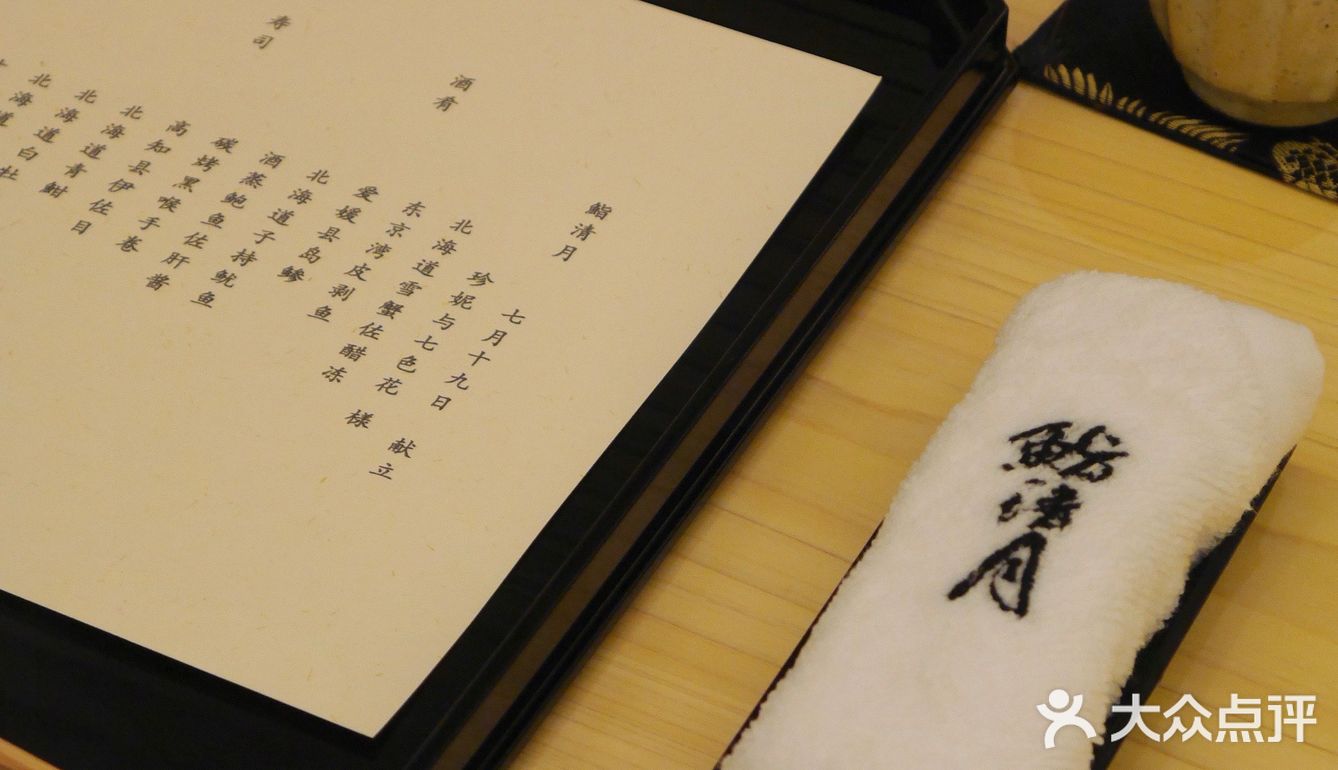 鮨清月
七月十九日 献立
珍妮与七色花 様
酒肴
北海道雪蟹佐醋冻
东京湾皮剥鱼
爱媛县岛鲹
北海道子持鱿鱼
酒蒸鲍鱼佐肝酱
碳烤黑喉手卷
寿司
高知县伊佐目
北海道青魽
北海道白牡
北海道
鮨清月
大众点评